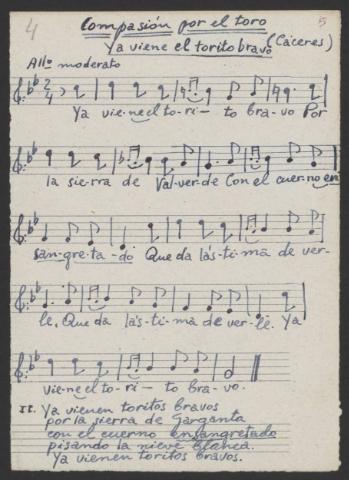 4
5
Compasión por el toro
Ya viene el torito bravo (Cáceres)
Allo moderato
Ya vie-ne el to-ri- to bra-vo Por
la sie-rra de Val-ver-de Con el cuer-no en
san-gre-ta-do Que da lás-ti-ma de ver-
le. Que da lás-ti-ma de ver-le. Ya
vie-ne el to-ri- to bra-vo.
II. Ya vienen toritos bravos
por la sierra de garganta
con el cuerno ensangretado
pisando la nieve blanca.
Ya vienen toritos bravos.